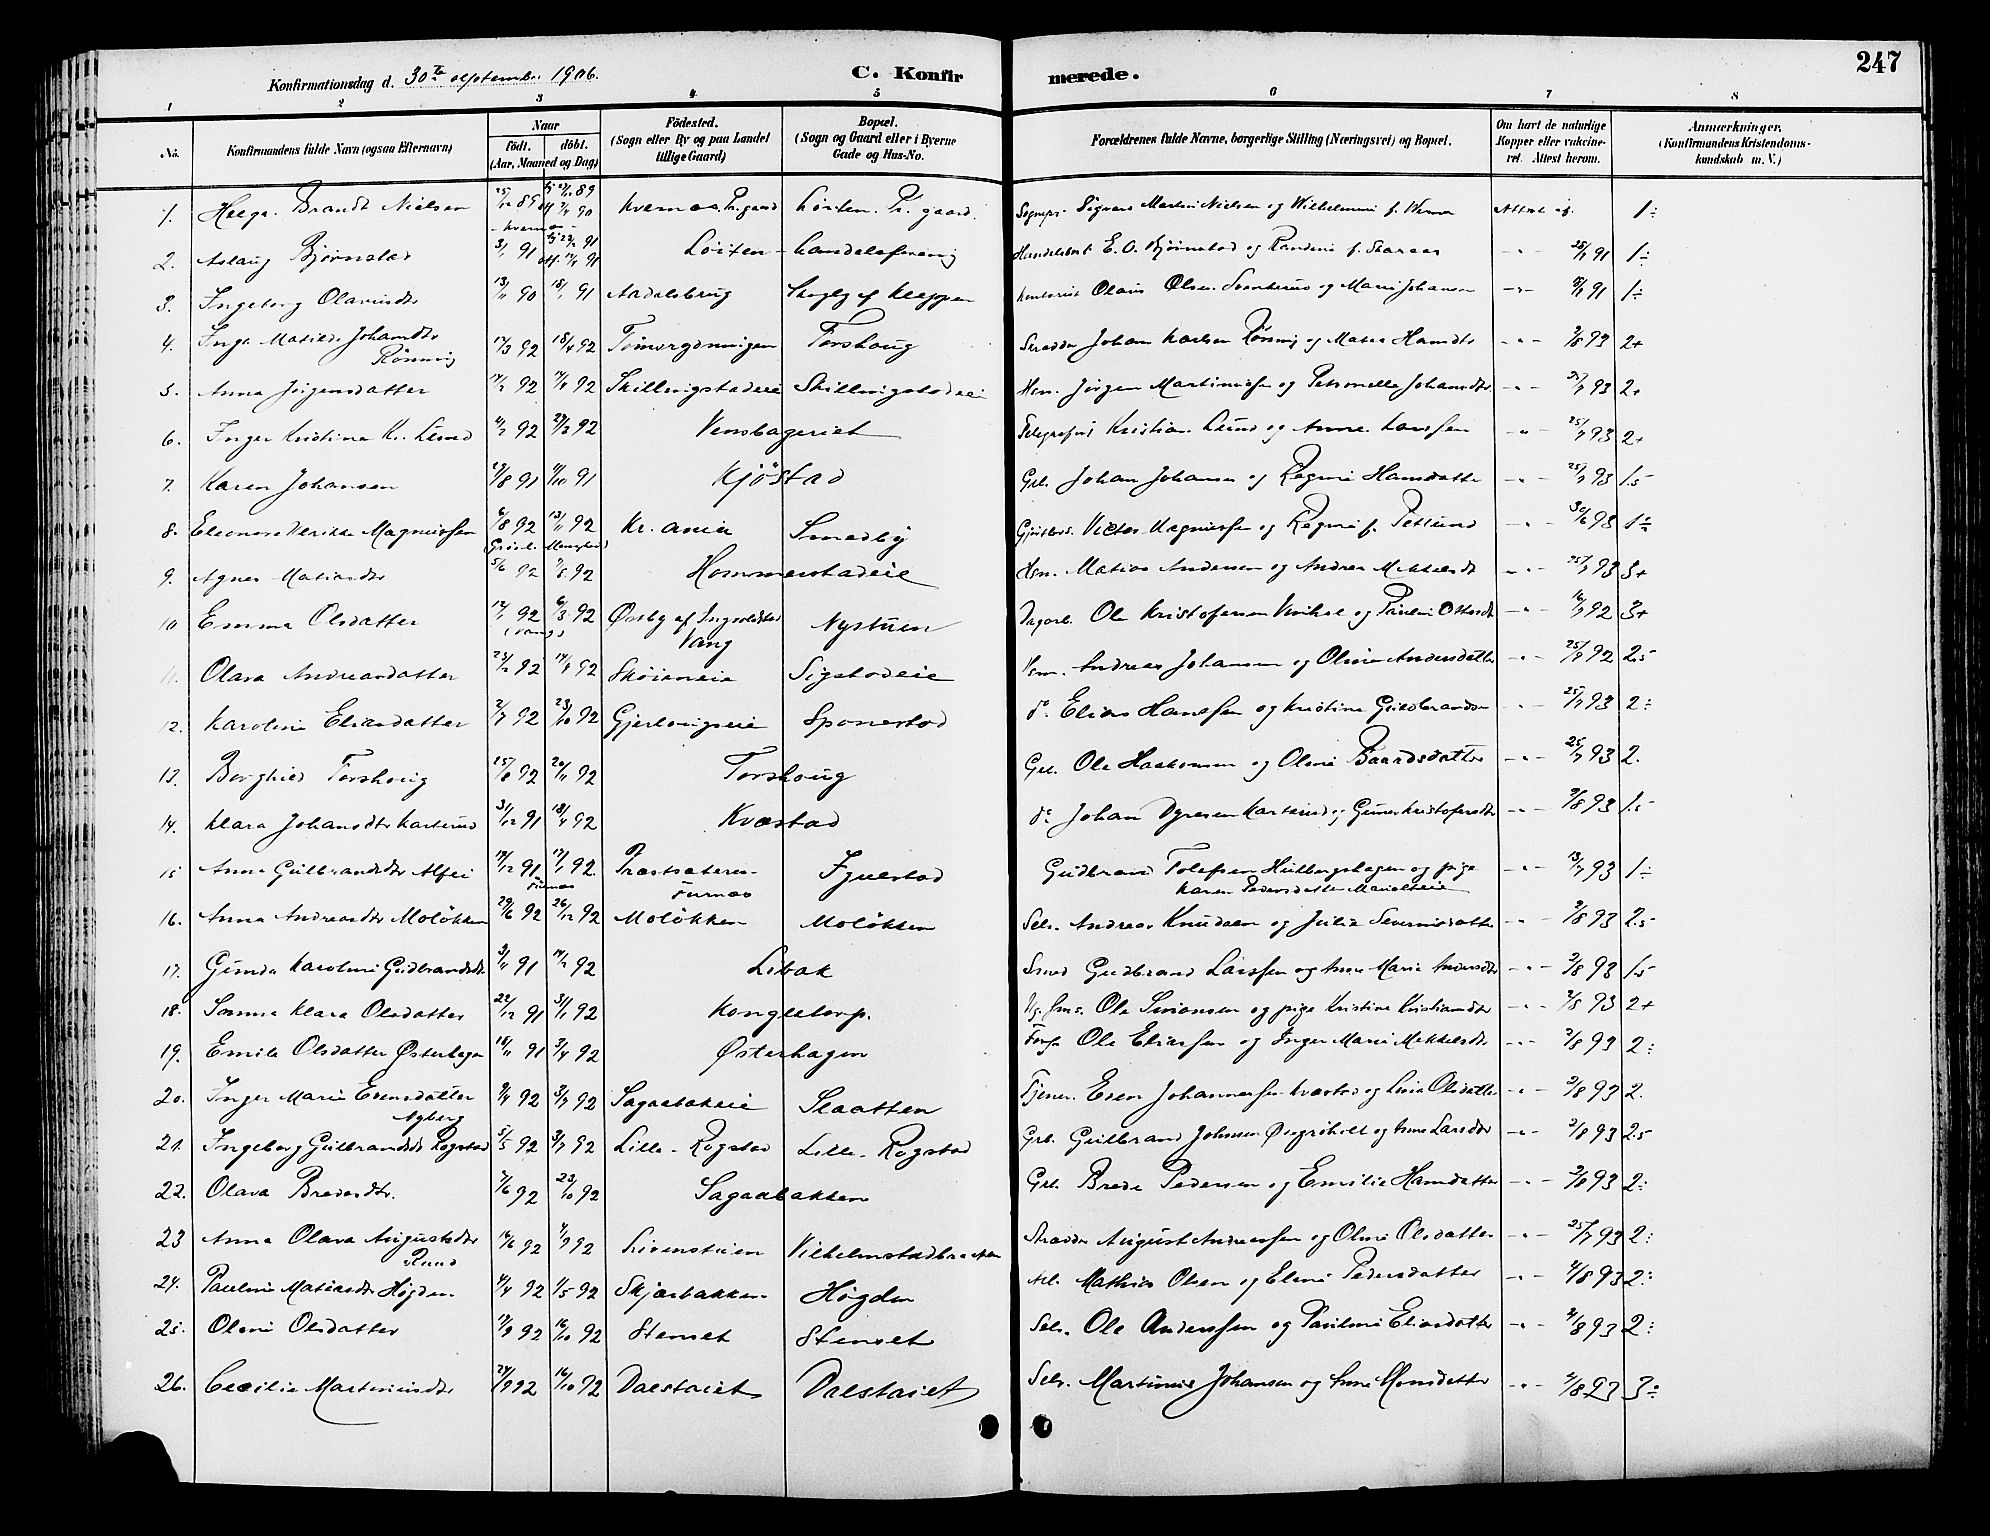 247
Konfirmationsdag d. 30te September 1906.
C. Konfirmerede.
1 2 3 4 5 6 7 8
No. Konfirmandens fulde Navn (ogsaa Efternavn) Naar født. døbt. (Aar, Maaned og Dag) Fødested. (Sogn eller By og paa Landet tillige Gaard) Bopæl. (Sogn og Gaard eller i Byerne Gade og Hus-No. Forældrenes fulde Navne, borgerlige Stilling (Næringsvei) og Bopæl. Om havt de naturlige Kopper eller vakcineret. Attest herom. Anmærkninger. (Konfirmandens Kristendomskundskab m. V.)
1. Helga Brandt Nielsen 25/12 89 Kvernes Pr. gaard Løiten Pr. gaard. Sognepr. Sigvard Martin Nielsen og Wilhelmine f. 1÷
2. Aslaug Bjørnstad 3/1 91 Løiten - Landelsforening E. O. Bjørnstad og Randine f. 25/7 91 1÷
3. Ingeborg Olavusdtr 13/11 90 18/1 91 Aadalsbrug Skogly af Kleppen Kontorist Olaus Olsen og Marie Johansen 91 1÷
4. Inga Matilde Johansdtr Rønning 17/3 92 18/4 92 Torshoug Skrædder Johan Karlsen Rønning og Matea Hansdtr 2/8 93 2+
5. Anna Jørgensdatter 92 92 Skillingstadeie Skillingstadeie Hsm. Jørgen Martinussen og Petronelle Johansdtr 25/7 93 2+
6. Inger Kristine Kr. Lund 92 29/3 92 Vensbageriet Telegrafist Kristian Lund og Anne Larssen 25/7 93 2+
7. Karen Johansen 29/8 91 11/10 91 Kjøstad Grb. Johan Johansen og Regine Hansdatter 25/7 93 1.5
8. Eleonora Ulrikke Magnussen 6/8 92 13/11 92 Kr.ania Smedby Victor Magnussen og Regine f. Petlund 30/6 93 1÷
9. Agnes Matiasdtr 5/6 92 92 Hommerstadeie Hsm. Matias Andersen og Andrea Mikkelsdt 25/7 93 3+
10 Emma Olsdatter 17/1 92 6/3 92 (Vang) Østby af Ingvoldstad Vang Nystuen Dagarb. Ole Kristofersen og Pauline Ottersdt 16/7 92 3+
11. Olava Andreasdatter 23/2 92 14/4 92 Skøieneie Sigstadeie Hsm. Andreas Johansen og Oline Andersdatter 25/7 92 2.5
12. Karoline Eliasdatter 2/7 92 23/10 92 Gjerlovigseie Sponerstad do. Elias Hansen og Kristine Guldbrandsen 25/7 93 2÷
13. Borghild Torshoug 25/8 92 20/11 92 Torshoug Grb. Ole Haakonsen og Oline Baardsdatter 25/7 93 2.
14. Klara Johansdtr Karterud 31/12 91 18/4 92 Kvæstad do. Johan Dyresen Karterud og Gunor Kristofersdtr 2/8 93 1.5
15 Anna Gulbrandsdtr Alfei 19/12 91 17/1 92 Furnes Præstsæteren Furnes Iguestad Gudbrand Tolefsen Hulbergshagen og pige Karen Pedersdatter Marielseie 13/7 93 1÷
16. Anna Andreasdtr Moløkken 29/6 92 26/12 92 Moløkken Moløkken Selv. Andreas Knudsen og Julie Severinsdatter 2/8 93 2.5
17. Gunda Karoline Gudbrandsdtr 3/11 91 14/2 92 Libak Smed Gudbrand Larssen og Anne Marie Andersdtr 2/8 93 1.5
18. Sanna Klara Olsdatter 22/12 91 31/1 92 Kongletorp. Ug. gms. Ole Simonsen og pige Kristine Kristiansdtr 2/8 93 2+
19. Emila Olsdatter Østerhagen 18/11 91 3/4 92 Østerhagen Ole Eliassen og Inger Marie Mikkelsdtr 2/8 93 2÷
20. Inger Marie Evensdatter Nyberg 9/4 92 3/7 92 Sagaabakeie Slaatten Tjener. Even Johannessen Kvæstad og Lina Olsdatter 2/8 93 2.
21. Ingeborg Gulbrandsdtr Rogstad 5/5 92 3/7 92 Lille-Rogstad Lille-Rogstad Grb. Gulbrand Johnsen og Anne Larsdtr 2/8 93 2.5
22. Olava Bredesdtr. 7/6 92 23/10 92 Sagaabakken Grb. Brede Pedersen og Emilie Hansdatter 2/8 93 2÷
23 Anna Olava Augustsdtr Rund 16/6 92 92 Livenstuen Vilhelmstadbraaten Skrædder August Andreassen og Oline Olsdatter 25/7 93 2÷
24. Pauline Matiasdtr Høgden 4/4 92 1/5 92 Skjærbakken Høgden Arb. Mathias Olsen og Eline Pedersdatter 4/8 93 2÷
25. Oline Olsdatter 17/9 92 16/10 92 Stenset Stenset Selv. Ole Anderssen og Pauline Eliasdatter 4/8 93 2÷
26. Cecilie Martinusdtr 24/9 92 16/10 92 Dalstaiet Dalstaiet Selv. Martinus Johansen og Anne Monsdatter 4/8 93 3÷